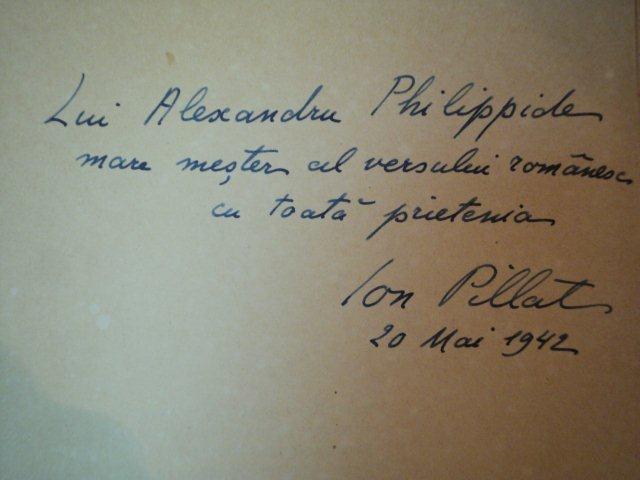 Lui Alexandru Philippide
mare meșter al versului românesc
cu toată prietenia
Ion Pillat
20 Mai 1942